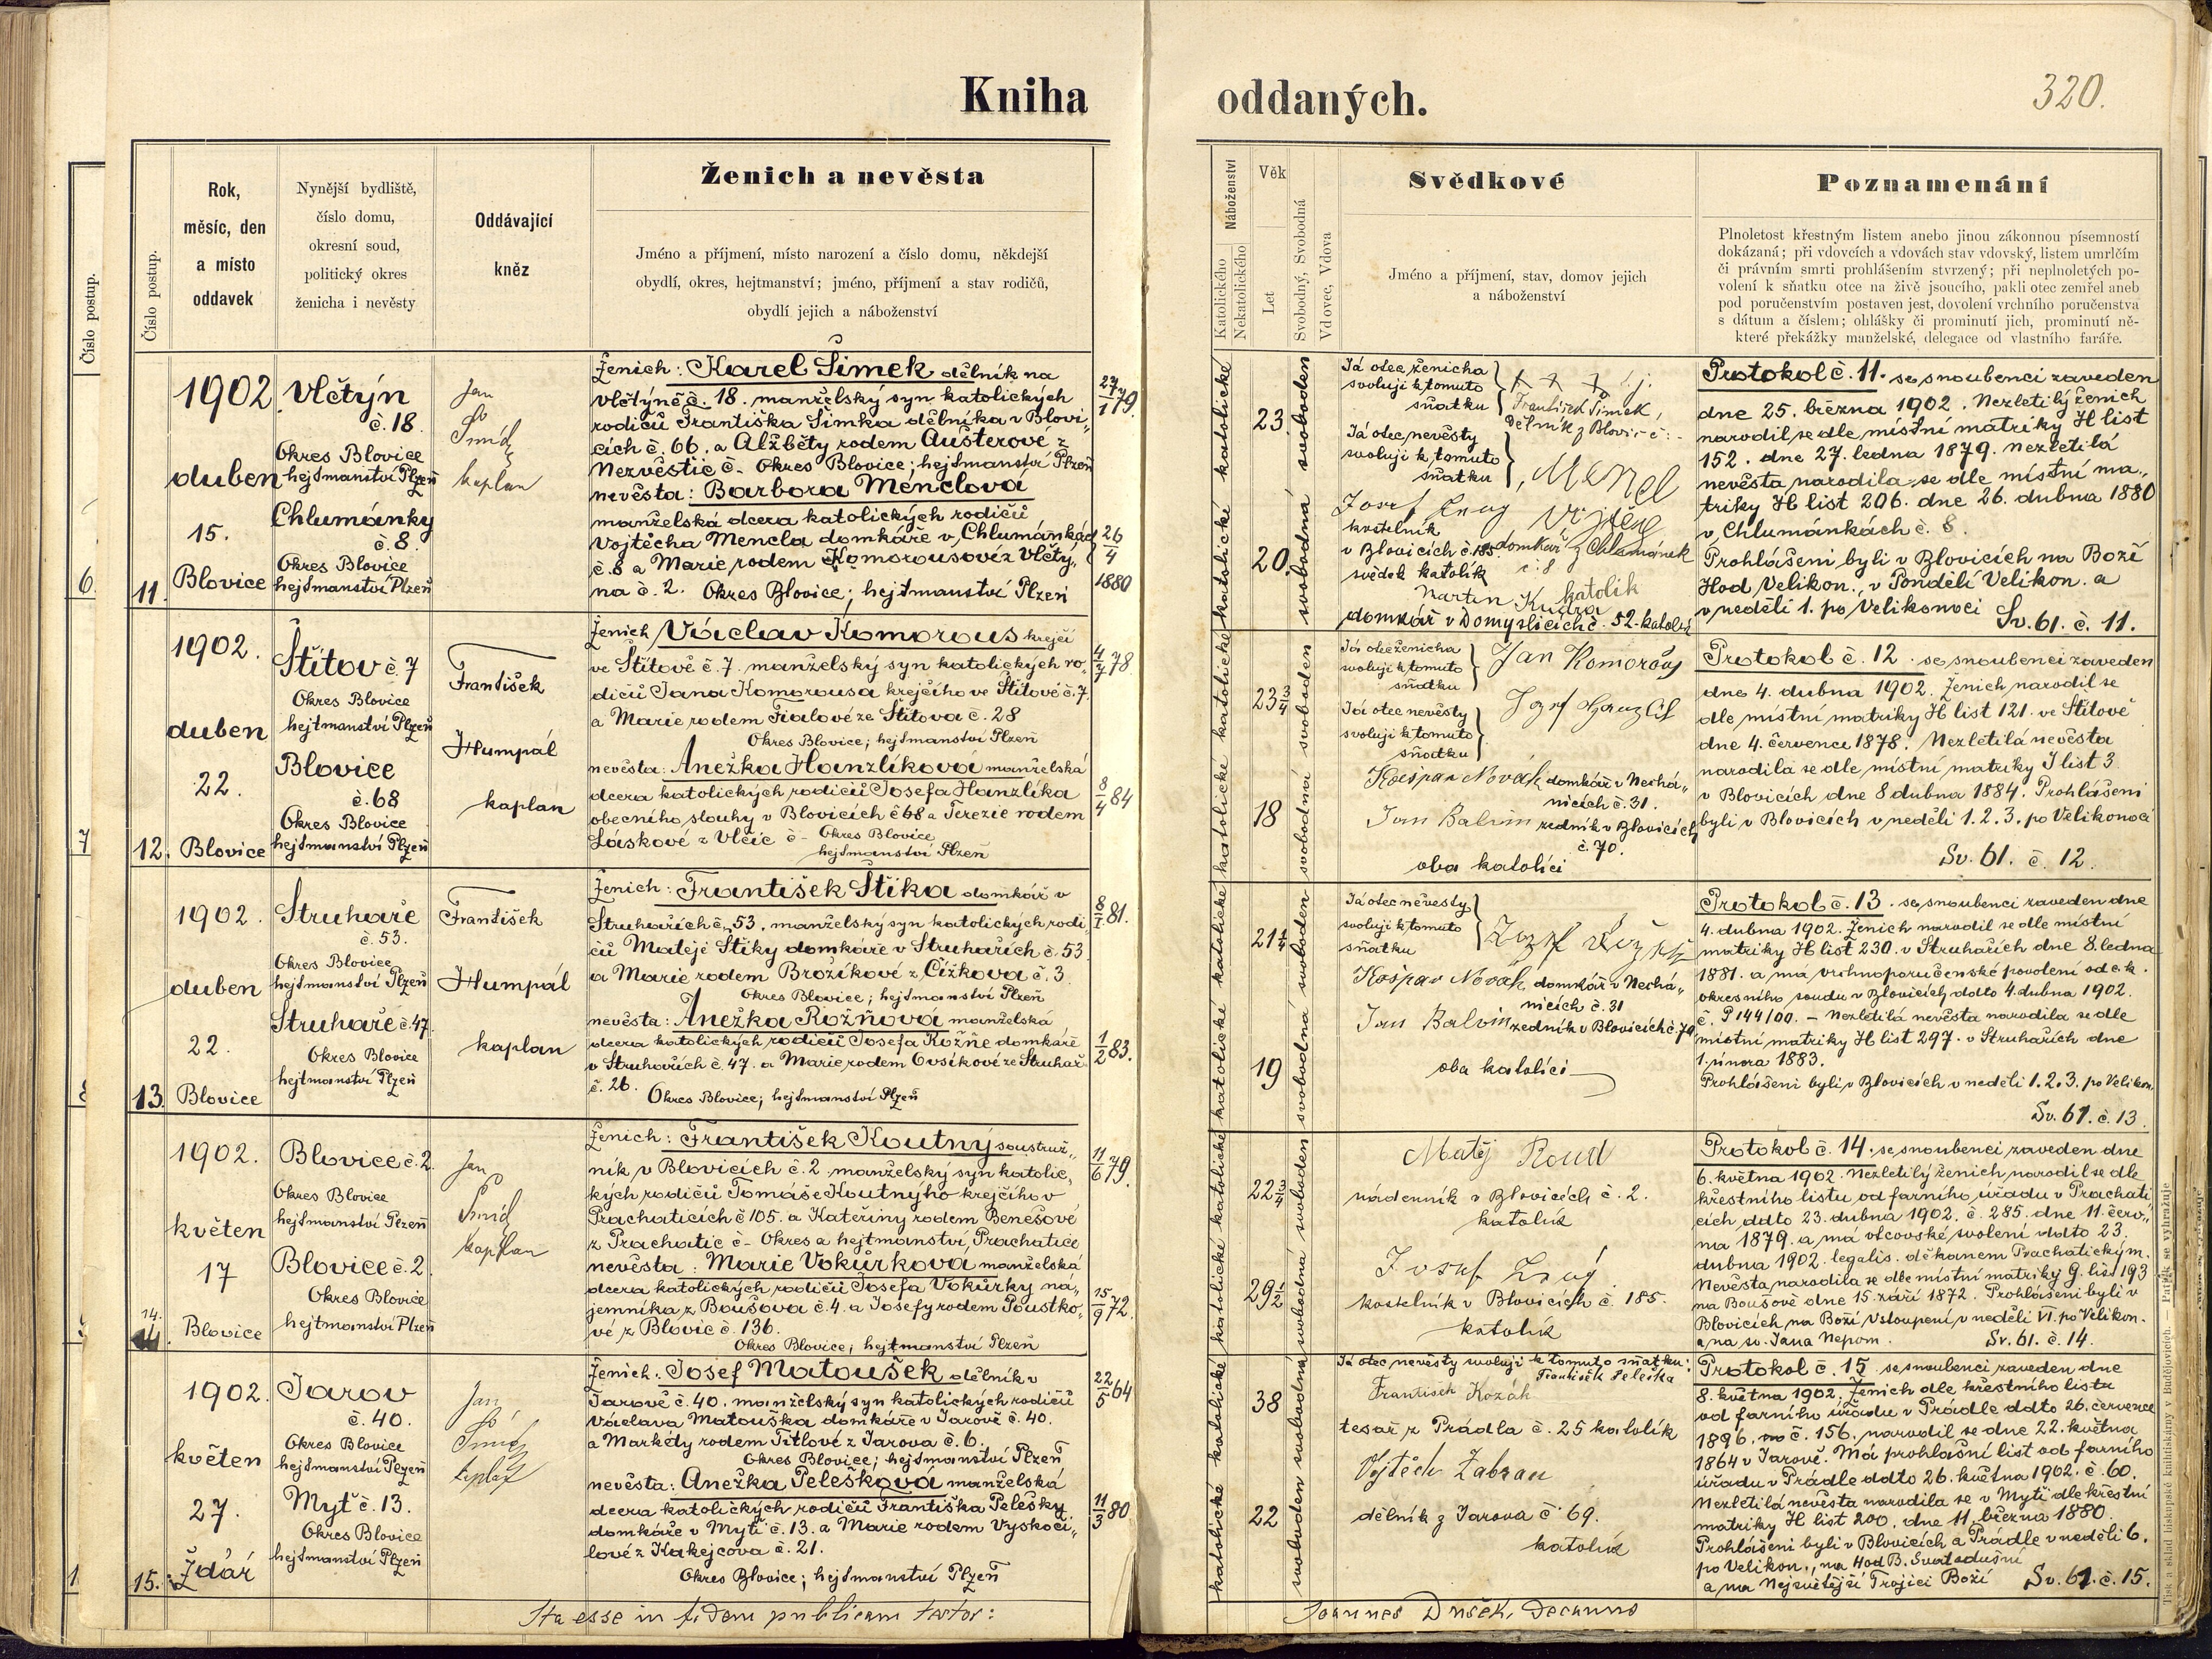 Kniha
oddaných.
320.
Číslo postup.
6.
7
1
Číslo postup.
Rok,
měsíc, den
a místo
oddavek
Nynější bydliště,
číslo domu,
okresní soud,
politický okres
ženicha i nevěsty
Oddávající
kněz
Ženich a nevěsta
Jméno a příjmení, místo narození a číslo domu, někdejší
obydlí, okres, hejtmanství; jméno, příjmení a stav rodičů,
obydlí jejich a náboženství
Náboženství
Katolického
Nekatolického
Věk
Let
Svobodný, Svobodná
Vdovec, Vdova
Svědkové
Jméno a příjmení, stav, domov jejich
a náboženství
Poznamenání
Plnoletost křestným listem anebo jinou zákonnou písemností
dokázaná; při vdovcích a vdovách stav vdovský, listem umrlčím
či právním smrti prohlášením stvrzený; při neplnoletých po-
volení k sňatku otce na živě jsoucího, pakli otec zemřel aneb
pod poručenstvím postaven jest, dovolení vrchního poručenstva
s dátum a číslem; ohlášky či prominutí jich, prominutí ně-
které překážky manželské, delegace od vlastního faráře.
11.
1902
duben
15.
Blovice
Vlčtýn
č. 18.
Okres Blovice
hejtmanství Plzeň
Chlumánky
č. 8
Okres Blovice
hejtmanství Plzeň
Jan
Šmíd
kaplan
Ženich: Karel Šimek dělník na
Vlčtýně č. 18. manželský syn katolických
rodičů Františka Šimka dělníka v Blovi„
cích č. 66. a Alžběty rodem Aušterové z
Nezvěstic č - Okres Blovice; hejtmanství Plzeň
nevěsta: Barbora Menclova
manželská dcera katolických rodičů
Vojtěcha Mencla domkáře v Chlumánkách
č. 8 a Marie rodem Komorousové z Vlčtý„
na č. 2. Okres Blovice; hejtmanství Plzeň
27/1 79.
26/4 1880
katolické
katolické
23.
20.
svoboden
svobodná
Já otec ženicha
svoluji k tomuto
sňatku
+ + +
František Šimek,
Dělník z Blovic č: -
Já otec nevěsty
svoluji k tomuto
sňatku
Menzel
Vojtěch
domkář z Chlumánek
č: 8
katolík
Josef
kostelník
v Blovicích č. 185
svědek katolík
Martin Kudra
domkář v Domyslicích č. 52. katolík
Protokol č. 11. se snoubenci zaveden
dne 25. března 1902. Nezletilý ženich
narodil se dle místní matriky H list
152. dne 27. ledna 1879. Nezletilá
nevěsta narodila se dle místní ma„
triky H list 206. dne 26. dubna 1880
v Chlumánkách č. 8.
Prohlášeni byli v Blovicích na Boží
Hod Velikon., v Pondělí Velikon. a
v neděli 1. po Velikonoci
Sv. 61. č. 11.
12.
1902.
duben
22.
Blovice
Štítov č. 7
Okres Blovice
hejtmanství Plzeň
Blovice
č. 68
Okres Blovice
hejtmanství Plzeň
František
Humpál
kaplan
Ženich Václav Komorous krejčí
ve Štítově č. 7. manželský syn katolických ro„
dičů Jana Komorousa krejčího ve Štítově č. 7.
a Marie rodem Fialové ze Štítova č. 28
Okres Blovice; hejtmanství Plzeň
nevěsta: Anežka Hanzlíková manželská
dcera katolických rodičů Josefa Hanzlíka
obecního slouhy v Blovicích č 68 a Terezie rodem
Láskové z Vlčic č - Okres Blovice
hejtmanství Plzeň
4/7 78.
8/4 84
katolické
katolické
23 3/4
18
svoboden
svobodná
Já otec ženicha
svoluji k tomuto
sňatku
Jan Komorous
Já otec nevěsty
svoluji k tomuto
sňatku
Kašpar Novák domkář v Nechá„
nicích č. 31.
Jan Balvín zedník v Blovicích
č. 70.
oba katolíci
Protokol č. 12. se snoubenci zaveden
dne 4. dubna 1902. Ženich narodil se
dle místní matriky H list 121. ve Štítově
dne 4. července 1878. Nezletilá nevěsta
narodila se dle místní matriky J list 3
v Blovicích dne 8 dubna 1884. Prohlášeni
byli v Blovicích v neděli 1. 2. 3. po Velikonoci
Sv. 61. č. 12.
13.
1902.
duben
22.
Blovice
Struhaře
č. 53.
Okres Blovice
hejtmanství Plzeň
Struhaře č. 47.
Okres Blovice
hejtmanství Plzeň
František
Humpál
kaplan
Ženich: František Štika domkář v
Struhařích č. 53. manželský syn katolických rodi„
čů Matěje Štiky domkáře v Struhařích č. 53
a Marie rodem Brožíkové z Čížkova č. 3
Okres Blovice; hejtmanství Plzeň
nevěsta: Anežka Rožňová manželská
dcera katolických rodičů Josefa Rožně domkáře
v Struhařích č. 47. a Marie rodem Ovsíkové ze Struhař
č. 26. Okres Blovice; hejtmanství Plzeň
8/1 81.
1/2 83.
katolické
katolické
21 1/4
19
svoboden
svobodná
Já otec nevěsty
svoluji k tomuto
sňatku
Kašpar Novák domkář v Nechá„
nicích č. 31
Jan Balvín zedník v Blovicích č. 70
oba katolíci
Protokol č. 13. se snoubenci zaveden dne
4. dubna 1902. Ženich narodil se dle místní
matriky H list 230. v Struhařích dne 8. ledna
1881. a má vrchnoporučenské povolení od c. k.
okresního soudu v Blovicích ddto 4. dubna 1902.
č. P 144/00. - Nezletilá nevěsta narodila se dle
místní matriky H list 297. v Struhařích dne
1. února 1883.
Prohlášeni byli v Blovicích v neděli 1. 2. 3. po Velikon.
Sv. 61. č. 13.
14.
1902.
květen
17
Blovice
Blovice č. 2.
Okres Blovice
hejtmanství Plzeň
Blovice č. 2.
Okres Blovice
hejtmanství Plzeň
Jan
Šmíd
kaplan
Ženich: František Koutný soustruž„
ník v Blovicích č. 2 manželský syn katolic„
kých rodičů Tomáše Koutnýho krejčího v
Prachaticích č 105. a Kateřiny rodem Benešové
z Prachatic č - Okres a hejtmanství Prachatice
nevěsta: Marie Vokůrková manželská
dcera katolických rodičů Josefa Vokůrky ná„
jemníka z Boušova č. 4. a Josefy rodem Poustko„
vé z Blovic č. 136.
Okres Blovice; hejtmanství Plzeň
11/6 79.
15/9 72.
katolické
katolické
22 3/4
29 1/2
svoboden
svobodná
Matěj Roud
nádenník v Blovicích č. 2.
katolík
Josef
kostelník v Blovicích č. 185.
katolík
Protokol č. 14. se snoubenci zaveden dne
6. května 1902. Nezletilý ženich narodil se dle
křestního listu od farního úřadu v Prachati„
cích ddto 23. dubna 1902. č. 285. dne 11. červ„
na 1879. a má otcovské svolení ddto 23.
dubna 1902. legalis. děkanem Prachatickým.
Nevěsta narodila se dle místní matriky G. list 193
na Boušově dne 15. září 1872. Prohlášeni byli v
Blovicích na Boží Vstoupení v neděli VI. po Velikon.
a na sv. Jana Nepom.
Sv. 61. č. 14.
15.
1902.
květen
27.
Ždár
Jarov
č. 40.
Okres Blovice
hejtmanství Plzeň
Myť č. 13.
Okres Blovice
hejtmanství Plzeň
Jan
Šmíd
kaplan
Ženich: Josef Matoušek dělník v
Jarově č. 40. manželský syn katolických rodičů
Václava Matouška domkáře v Jarově č. 40.
a Markédy rodem Titlové z Jarova č. 6.
Okres Blovice; hejtmanství Plzeň
nevěsta: Anežka Pelešková manželská
dcera katolických rodičů Františka Pelešky
domkáře v Myti č. 13. a Marie rodem Vyskoči„
lové z Kakejcova č. 21.
Okres Blovice; hejtmanství Plzeň
22/5 64
11/3 80
katolické
katolické
38
22
svoboden
svobodná
Já otec nevěsty svoluji k tomuto sňatku:
František Peleška
František Kozák
tesař z Prádla č. 25 katolík
Vojtěch Žabran
dělník z Jarova č. 69.
katolík
Protokol č. 15 se snoubenci zaveden dne
8. května 1902. Ženich dle křestního listu
od farního úřadu v Prádle ddto 26. července
1896. č. 156. narodil se dne 22. května
1864 v Jarově. Má prohlašní list od farního
úřadu v Prádle ddto 26. května 1902. č. 60.
Nezletilá nevěsta narodila se v Myti dle křestní
matriky H list 200. dne 11. března 1880.
Prohlášeni byli v Blovicích a Prádle v neděli 6.
po Velikon., na Hod B. Svatodušní
a na Nejsvětější Trojici Boží
Sv. 61. č. 15.
Ita esse in fidem publicam testor:
Joannes Dušek, Decanus
Tisk a sklad biskupské knihtiskárny v Budějovicích.